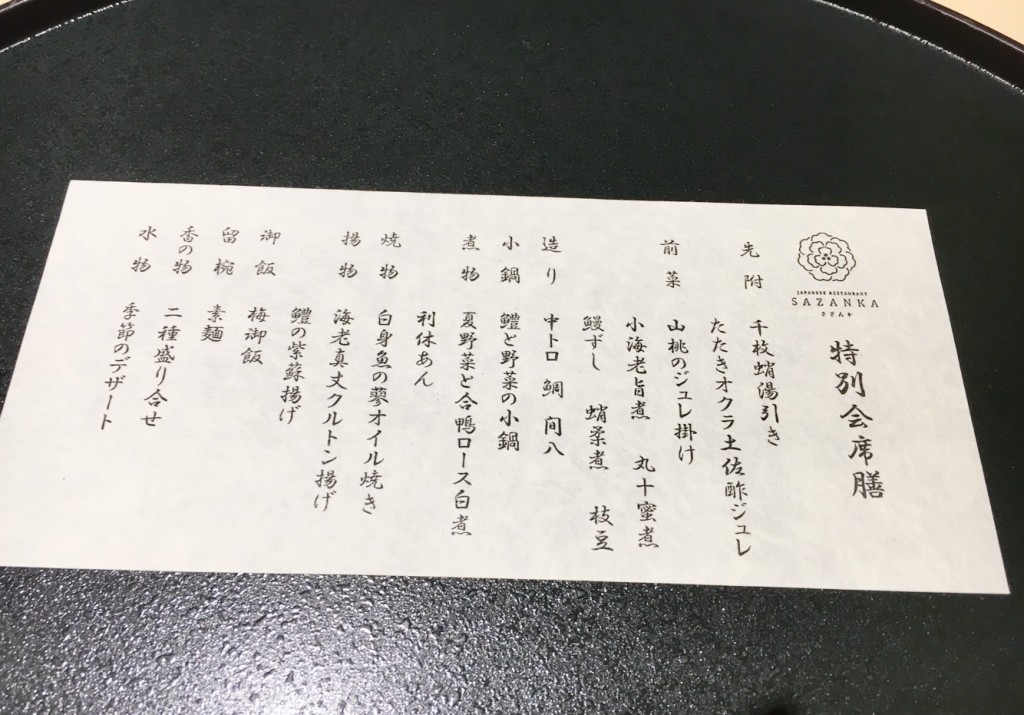 JAPANESE RESTAURANT
SAZANKA
さざんか
特別会席膳
先附 千枚蛸湯引き
たたきオクラ土佐酢ジュレ
前菜 山桃のジュレ掛け
小海老旨煮 丸十蜜煮
鰻ずし 蛸柔煮 枝豆
造り 中トロ 鯛 间八
小鍋 鱧と野菜の小鍋
煮物 夏野菜と合鴨ロース白煮
利休あん
焼物 白身魚の蓼オイル焼き
揚物 海老真丈クルトン揚げ
鱧の紫蘇揚げ
御飯 梅御飯
留椀 素麺
香の物 二種盛り合せ
水物 季節のデザート